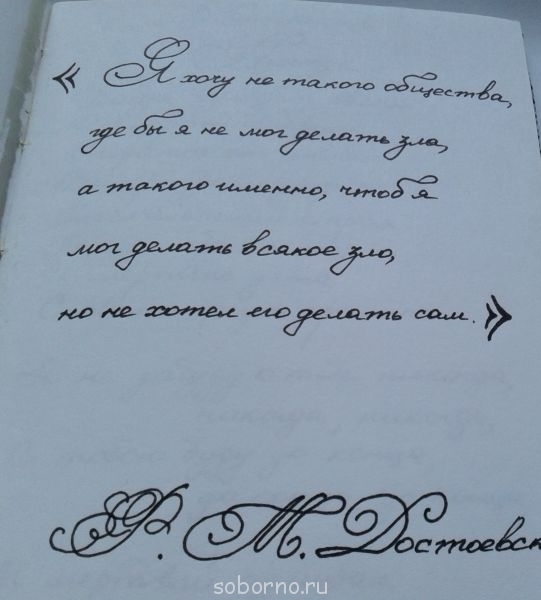 « Я хочу не такого общества,
где бы я не мог делать зла,
а такого именно, чтоб я
мог делать всякое зло,
но не хотел его делать сам. »
Ф. М. Достоевск
soborno.ru